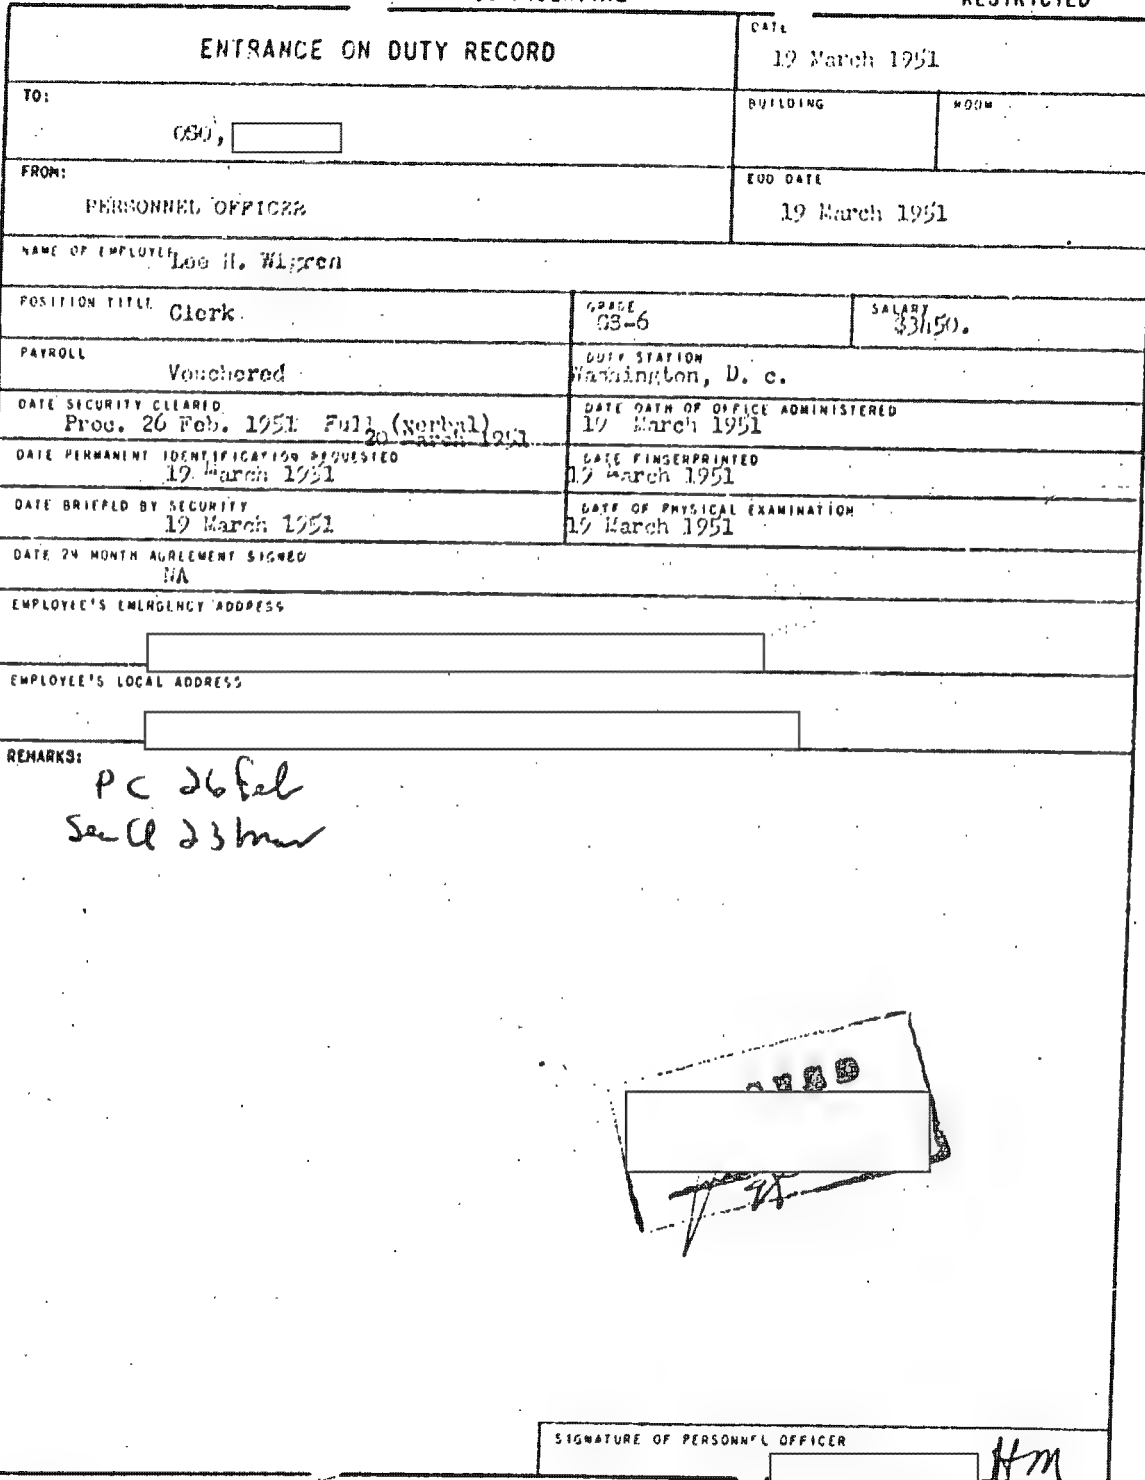 RESTRICTED
ENTRANCE ON DUTY RECORD
DATE
19 March 1951
TO:
OSO,
BUILDING
ROOM
FROM:
PERSONNEL OFFICER
EOD DATE
19 March 1951
NAME OF EMPLOYEE
Lee H. Wigren
POSITION TITLE
Clerk
GRADE
GS-6
SALARY
$3450.
PAYROLL
Vouchered
DUTY STATION
Washington, D. c.
DATE SECURITY CLEARED
Proc. 26 Feb. 1951 Full (verbal)
20 March 1951
DATE OATH OF OFFICE ADMINISTERED
19 March 1951
DATE PERMANENT IDENTIFICATION REQUESTED
19 March 1951
DATE FINGERPRINTED
19 March 1951
DATE BRIEFED BY SECURITY
19 March 1951
DATE OF PHYSICAL EXAMINATION
19 March 1951
DATE 24 MONTH AGREEMENT SIGNED
NA
EMPLOYEE'S EMERGENCY ADDRESS
EMPLOYEE'S LOCAL ADDRESS
REMARKS:
PC 26 Feb
Sec Cl 23 Mar
SIGNATURE OF PERSONNEL OFFICER
HM